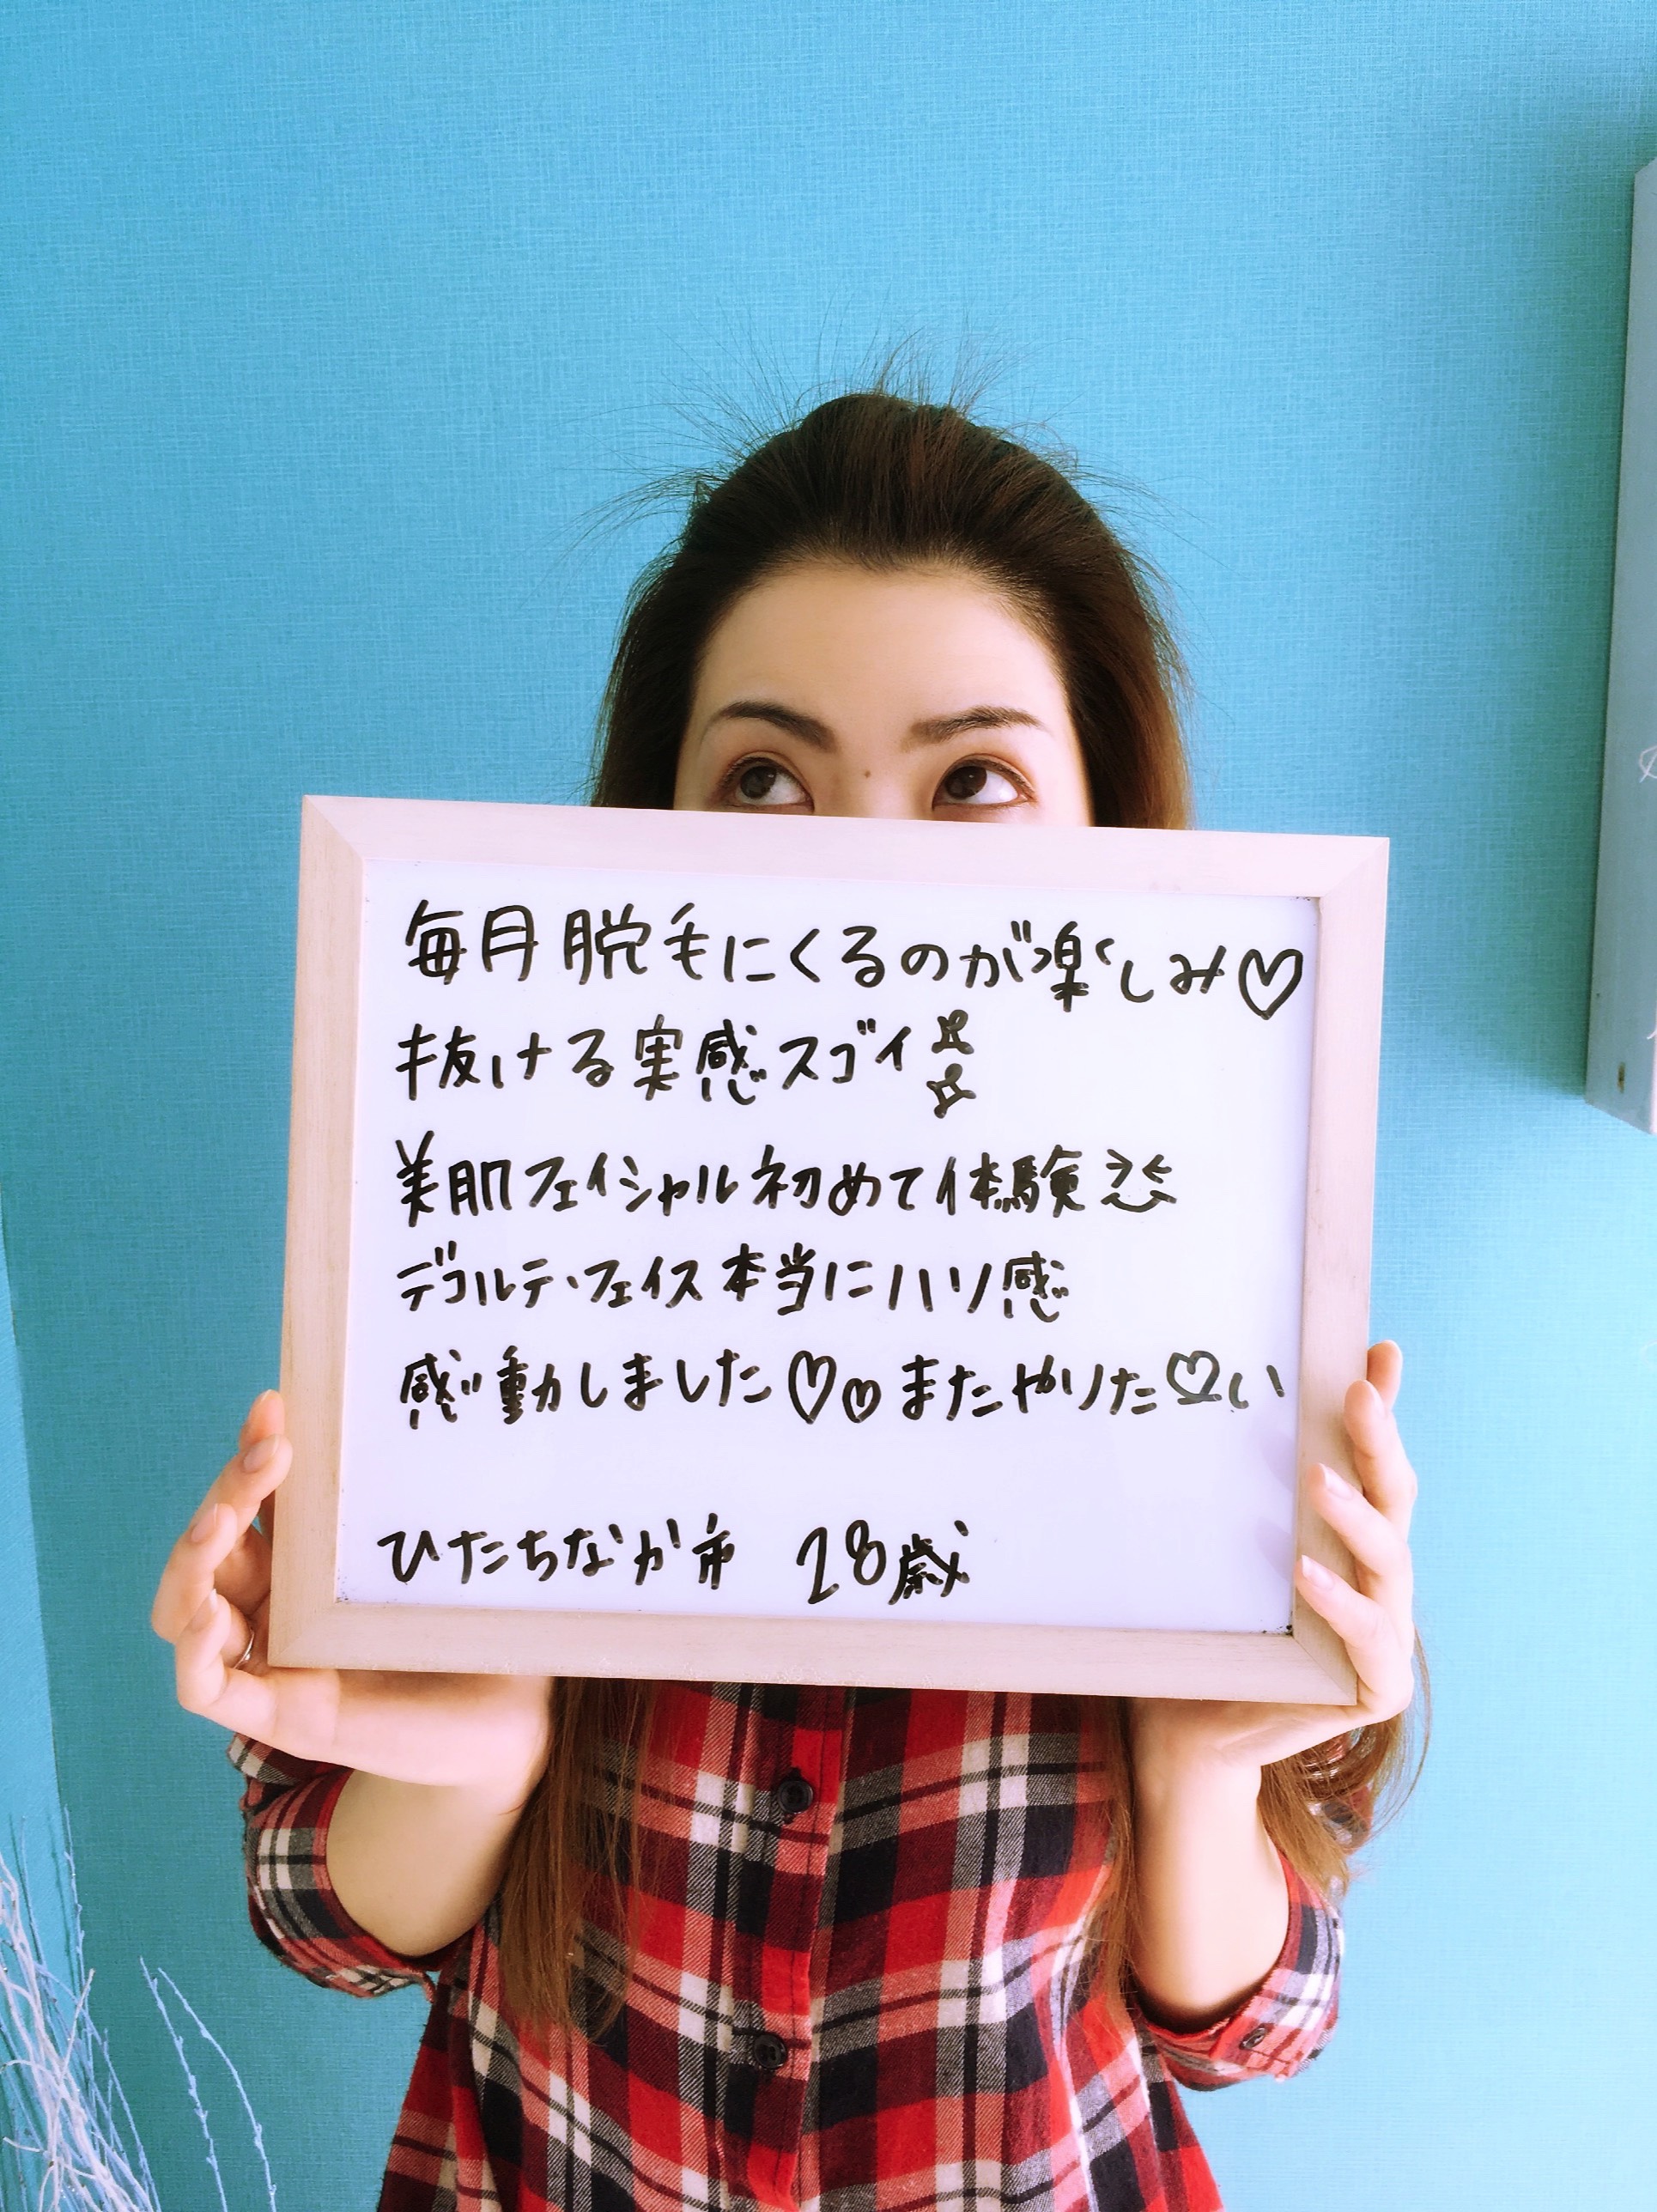 毎月脱毛にくるのが楽しみ♡
抜ける実感スゴイ
美肌フェイシャル初めて体験
デコルテ・フェイス本当にハリ感
感動しました♡♡またやりた♡い
ひたちなか市 28歳